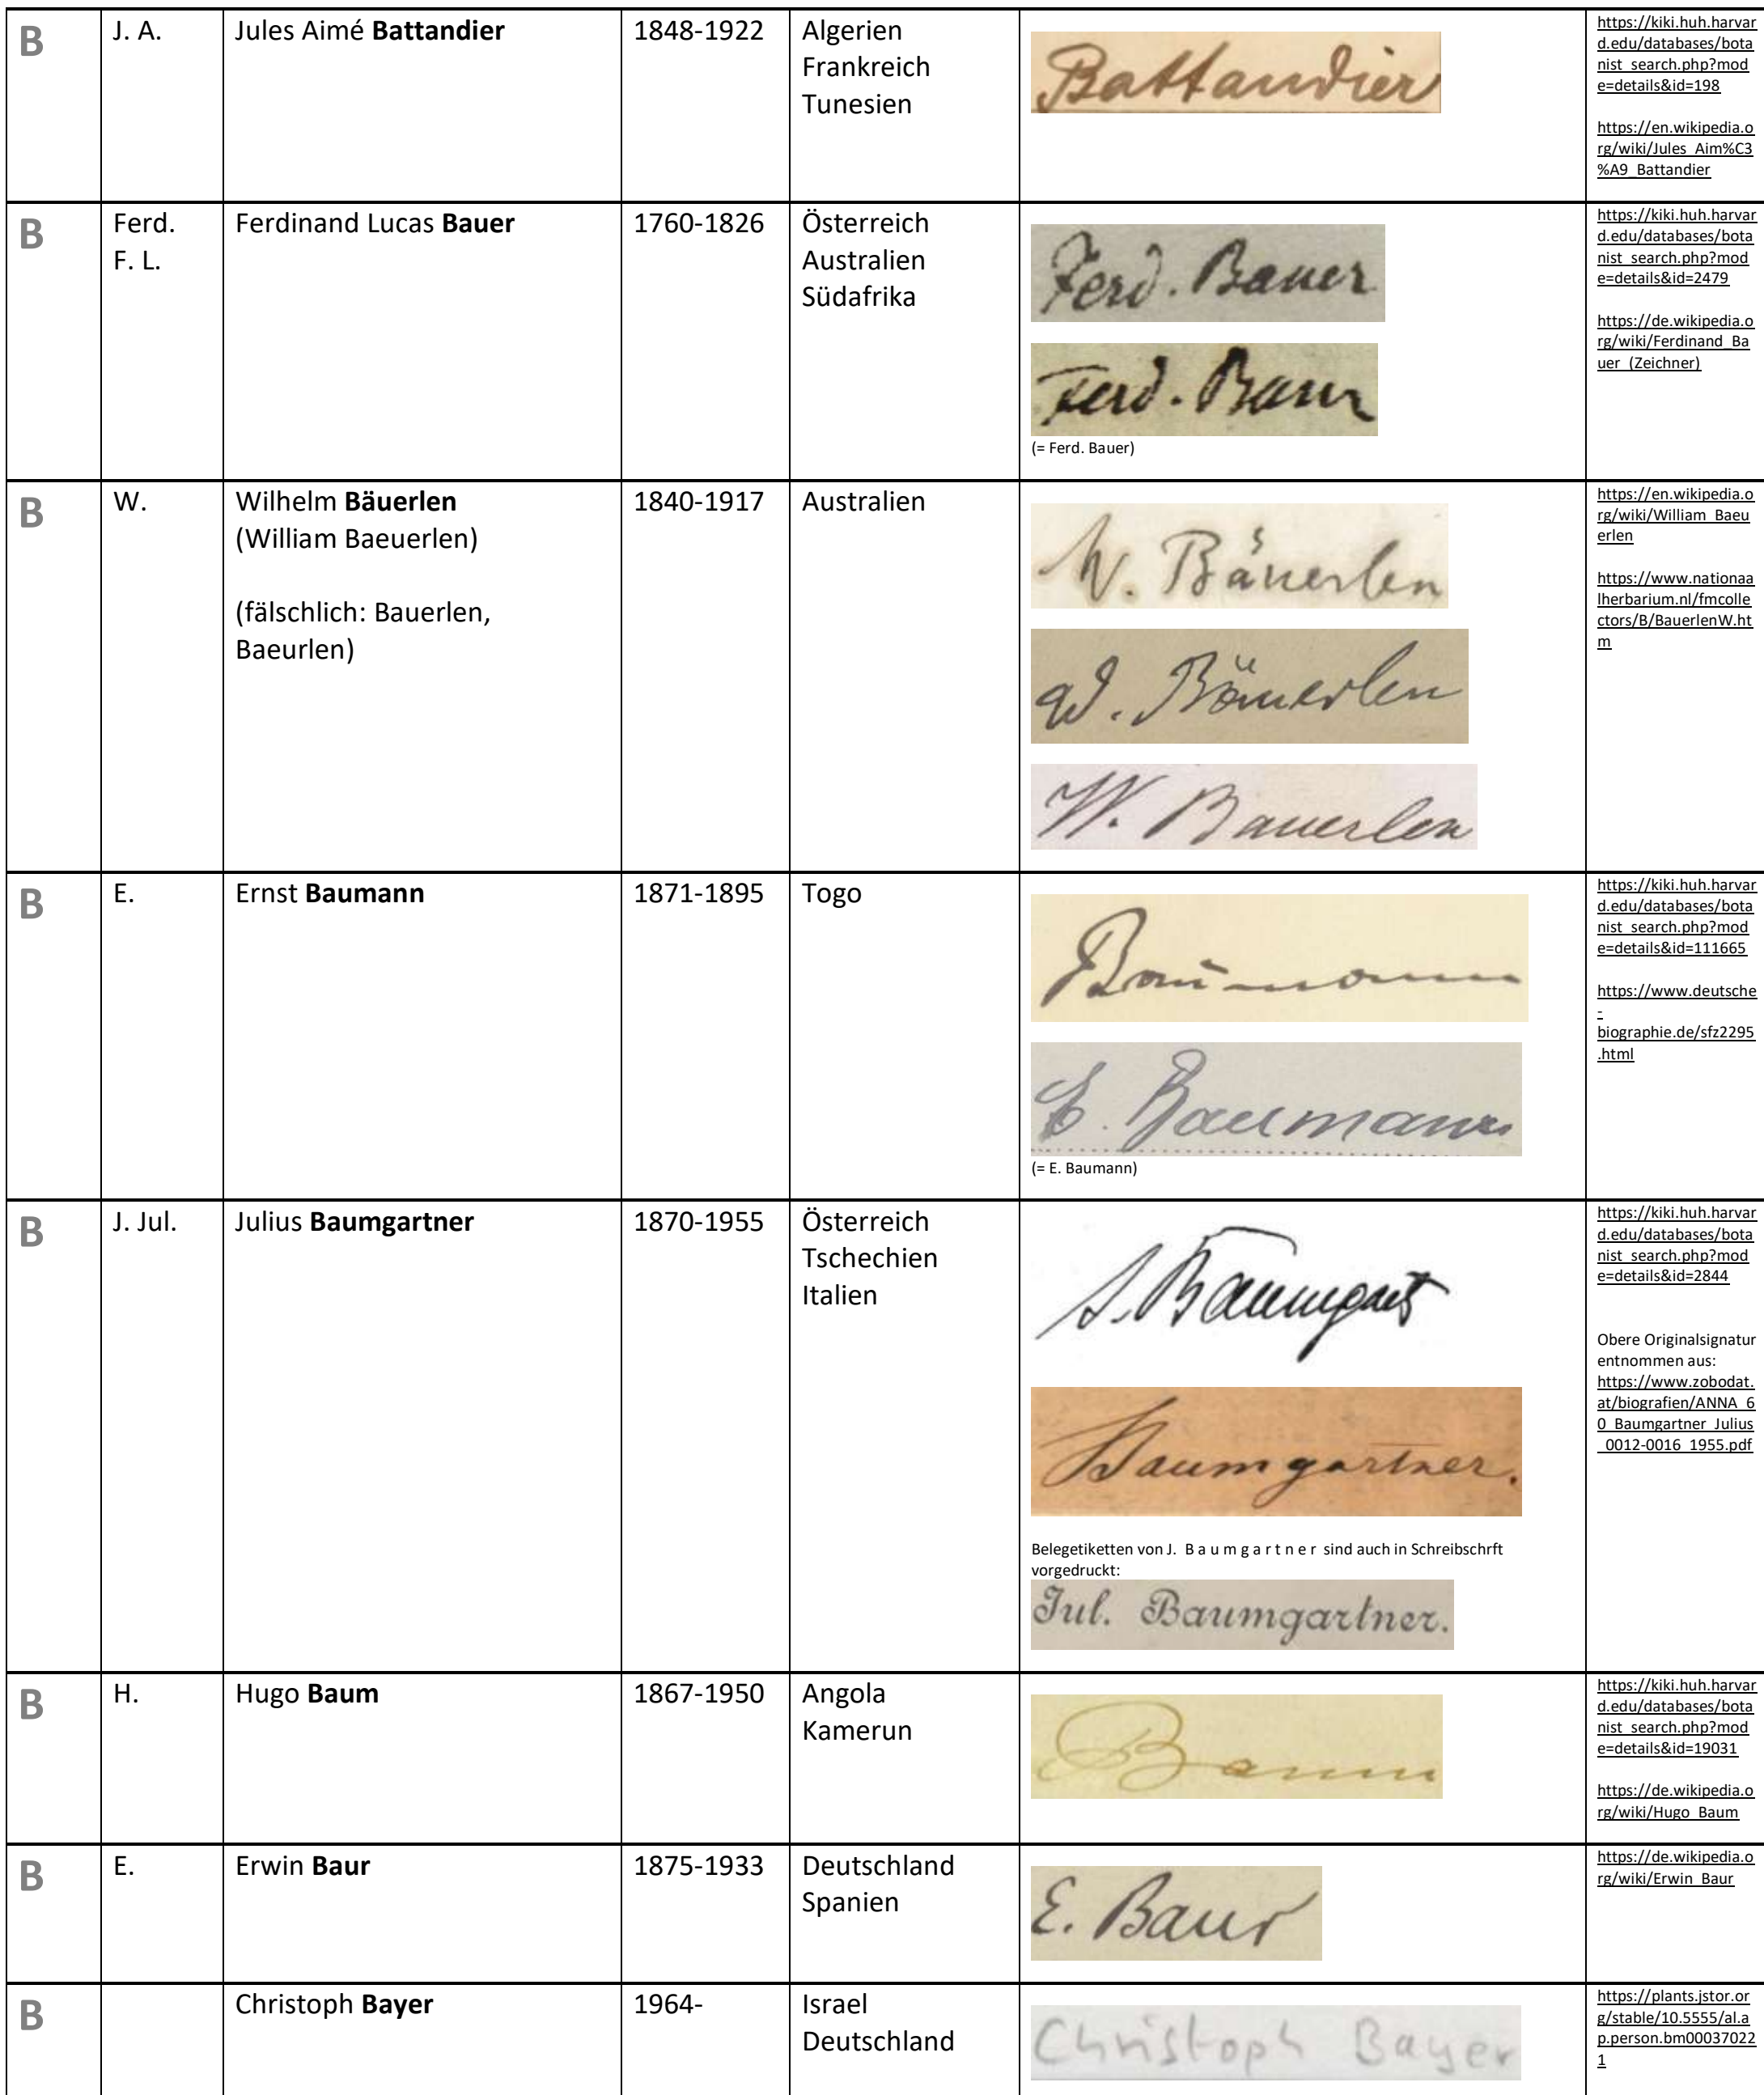 B
J. A.
Jules Aimé Battandier
1848-1922
Algerien
Frankreich
Tunesien
Battandier
https://kiki.huh.harvar
d.edu/databases/bota
nist_search.php?mod
e=details&id=198
https://en.wikipedia.o
rg/wiki/Jules_Aim%C3
%A9_Battandier
B
Ferd.
F. L.
Ferdinand Lucas Bauer
1760-1826
Österreich
Australien
Südafrika
Ferd. Bauer
Ferd. Bauer
(= Ferd. Bauer)
https://kiki.huh.harvar
d.edu/databases/bota
nist_search.php?mod
e=details&id=2479
https://de.wikipedia.o
rg/wiki/Ferdinand_Ba
uer_(Zeichner)
B
W.
Wilhelm Bäuerlen
(William Baeuerlen)
(fälschlich: Bauerlen,
Baeurlen)
1840-1917
Australien
W. Bäuerlen
W. Bäuerlen
W. Bauerlen
https://en.wikipedia.o
rg/wiki/William_Baeu
erlen
https://www.nationaa
lherbarium.nl/fmcolle
ctors/B/BauerlenW.ht
m
B
E.
Ernst Baumann
1871-1895
Togo
Baumann
E. Baumann
(= E. Baumann)
https://kiki.huh.harvar
d.edu/databases/bota
nist_search.php?mod
e=details&id=111665
https://www.deutsche
-
biographie.de/sfz2295
.html
B
J. Jul.
Julius Baumgartner
1870-1955
Österreich
Tschechien
Italien
J. Baumgart
Baumgartner.
Belegetiketten von J. B a u m g a r t n e r sind auch in Schreibschrft
vorgedruckt:
Jul. Baumgartner.
https://kiki.huh.harvar
d.edu/databases/bota
nist_search.php?mod
e=details&id=2844
Obere Originalsignatur
entnommen aus:
https://www.zobodat.
at/biografien/ANNA_6
0_Baumgartner_Julius
_0012-0016_1955.pdf
B
H.
Hugo Baum
1867-1950
Angola
Kamerun
Baum
https://kiki.huh.harvar
d.edu/databases/bota
nist_search.php?mod
e=details&id=19031
https://de.wikipedia.o
rg/wiki/Hugo_Baum
B
E.
Erwin Baur
1875-1933
Deutschland
Spanien
E. Baur
https://de.wikipedia.o
rg/wiki/Erwin_Baur
B
Christoph Bayer
1964-
Israel
Deutschland
Christoph Bayer
https://plants.jstor.or
g/stable/10.5555/al.a
p.person.bm00037022
1